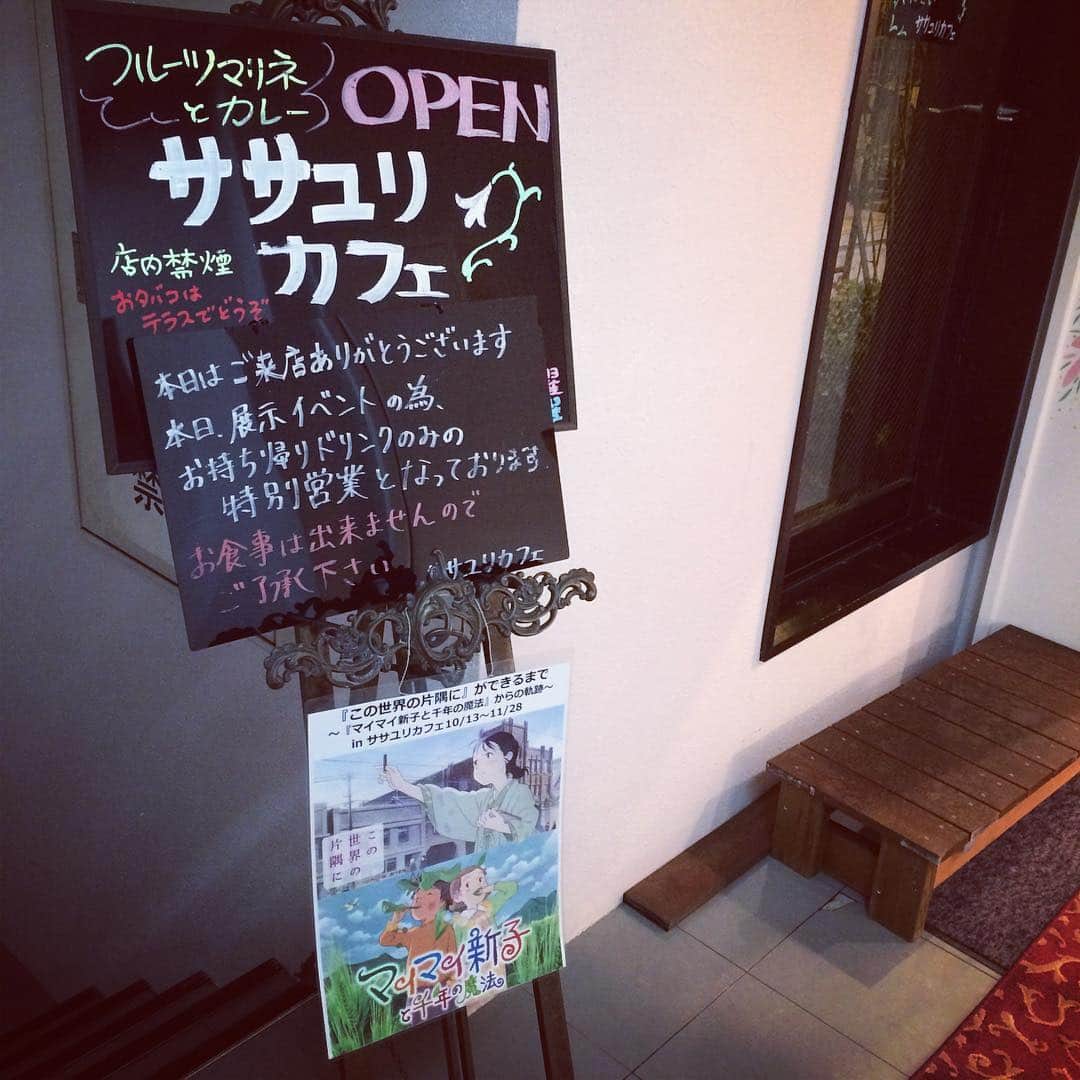 フルーツマリネ
とカレー
OPEN
ササユリ
カフェ
店内禁煙
おタバコは
テラスでどうぞ
本日はご来店ありがとうございます
本日、展示イベントの為、
お持ち帰りドリンクのみの
特別営業となっております。
お食事は出来ませんので
ご了承下さい
ササユリカフェ
『この世界の片隅に』ができるまで
～『マイマイ新子と千年の魔法』からの軌跡～
in ササユリカフェ10/13～11/28
この
世界の
片隅に
マイマイ新子
と千年の魔法
ササユリカフェ